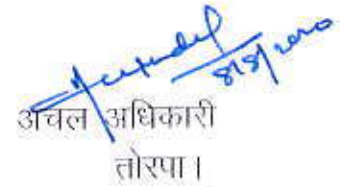 8/8/2020
अंचल अधिकारी
तोरपा।